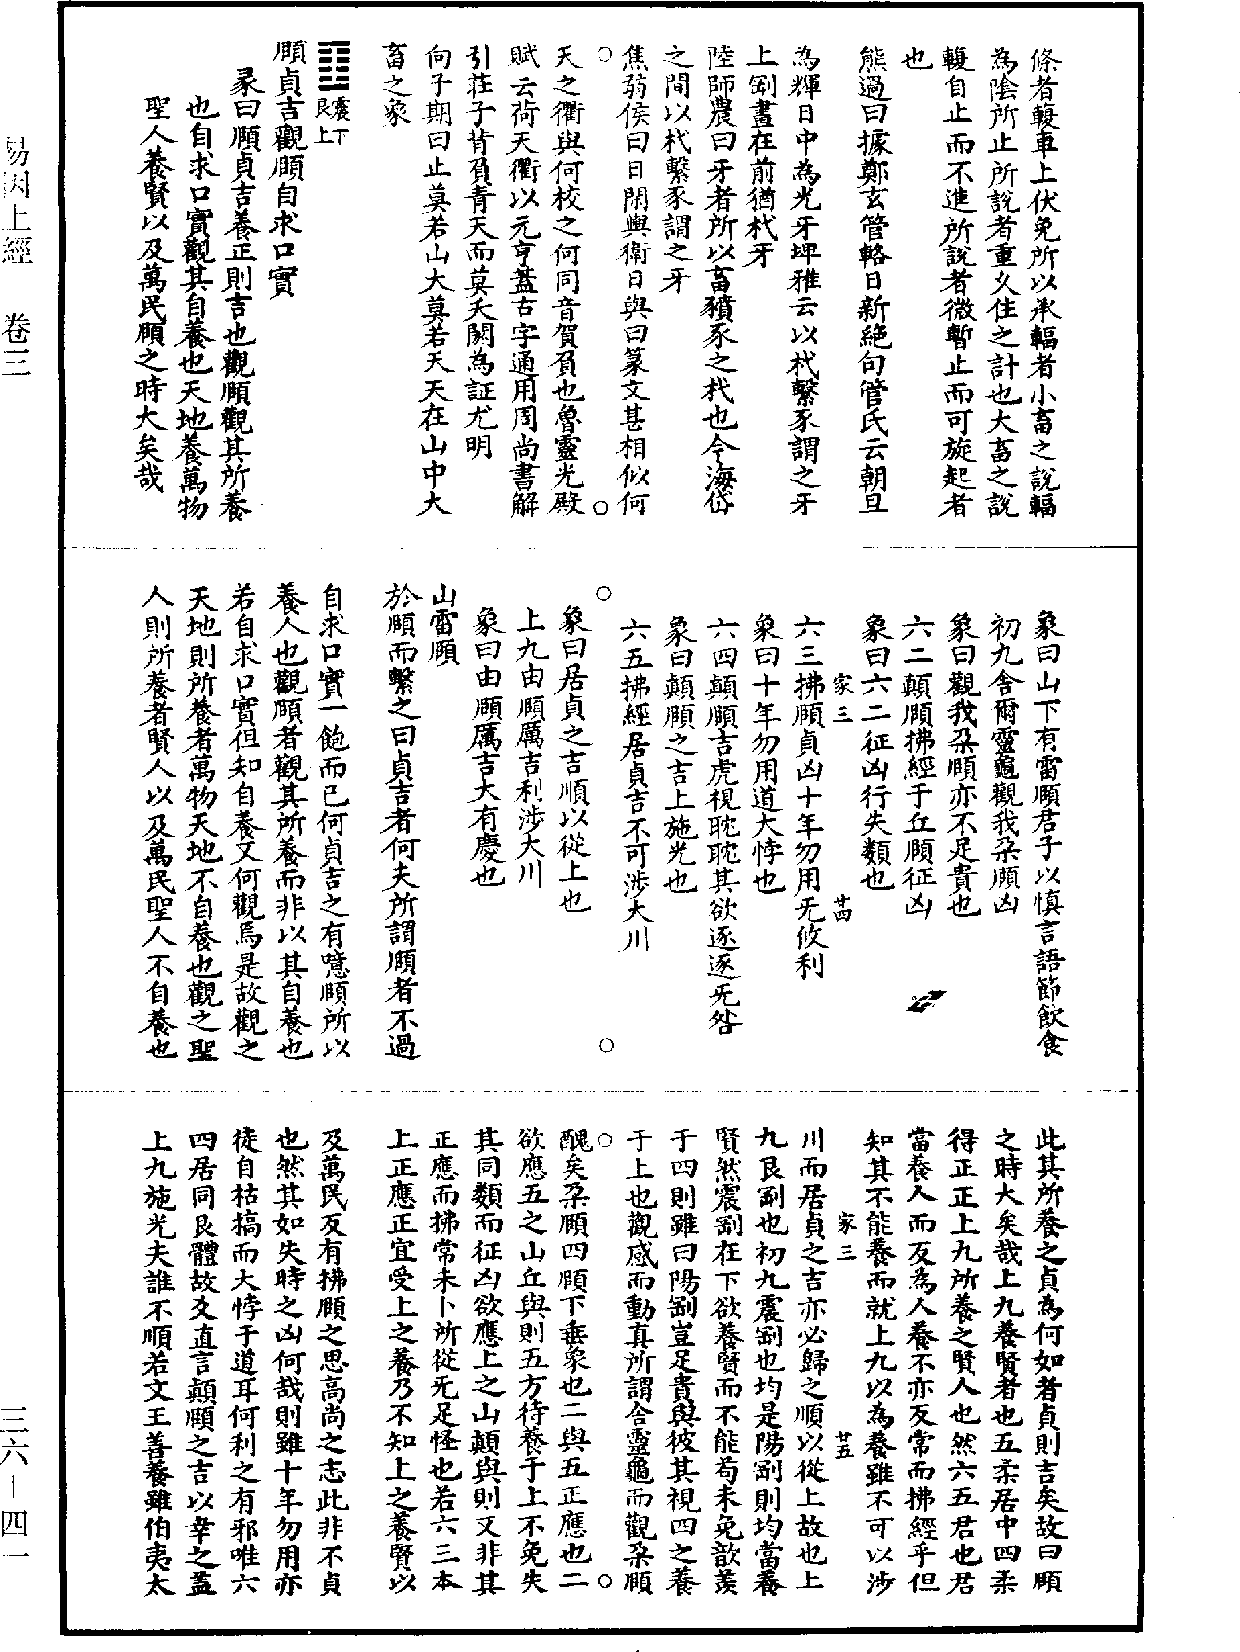 條者輹車上伏兔所以承輻者小畜之說輻
為陰所止所說者重久住之計也大畜之說
輹自止而不進所說者微暫止而可旋起者
也
熊過曰據鄭玄管輅日新絕句管氏云朝旦
為輝日中為光牙埤雅云以杙繫豕謂之牙
上剛畫在前猶杙牙
陸師農曰牙者所以畜豶豕之杙也今海岱
之間以杙繫豕謂之牙
焦弱侯曰日閑輿衛日與曰篆文甚相似何
天之衢與何校之何同音賀負也魯靈光殿
賦云荷天衢以元亨蓋古字通用周尚書解
引莊子背負青天而莫夭閼為証尤明
向子期曰止莫若山大莫若天天在山中大
畜之象
震下
艮上
頤貞吉觀頤自求口實
彖曰頤貞吉養正則吉也觀頤觀其所養
也自求口實觀其自養也天地養萬物
聖人養賢以及萬民頤之時大矣哉
象曰山下有雷頤君子以慎言語節飲食
初九舍爾靈龜觀我朶頤凶
象曰觀我朶頤亦不足貴也
六二顛頤拂經于丘頤征凶
象曰六二征凶行失類也
家三 廿四
六三拂頤貞凶十年勿用无攸利
象曰十年勿用道大悖也
六四顛頤吉虎視眈眈其欲逐逐无咎
象曰顛頤之吉上施光也
六五拂經居貞吉不可涉大川
象曰居貞之吉順以從上也
上九由頤厲吉利涉大川
象曰由頤厲吉大有慶也
山雷頤
於頤而繫之曰貞吉者何夫所謂頤者不過
自求口實一飽而已何貞吉之有噫頤所以
養人也觀頤者觀其所養而非以其自養也
若自求口實但知自養又何觀焉是故觀之
天地則所養者萬物天地不自養也觀之聖
人則所養者賢人以及萬民聖人不自養也
此其所養之貞為何如者貞則吉矣故曰頤
之時大矣哉上九養賢者也五柔居中四柔
得正正上九所養之賢人也然六五君也君
當養人而反為人養不亦反常而拂經乎但
知其不能養而就上九以為養雖不可以涉
家三 廿五
川而居貞之吉亦必歸之順以從上故也上
九艮剛也初九震剛也均是陽剛則均當養
賢然震剛在下欲養賢而不能苟未免歆羨
于四則雖曰陽剛豈足貴與彼其視四之養
于上也觀感而動真所謂舍靈龜而觀朶頤
醜矣朶頤四頤下垂象也二與五正應也二
欲應五之山丘與則五方待養于上不免失
其同類而征凶欲應上之山顛與則又非其
正應而拂常未卜所從无足怪也若六三本
上正應正宜受上之養乃不知上之養賢以
及萬民反有拂頤之思高尚之志此非不貞
也然其如失時之凶何哉則雖十年勿用亦
徒自枯搞而大悖于道耳何利之有邪唯六
四居同艮體故爻直言顛頤之吉以幸之蓋
上九施光夫誰不順若文王善養雖伯夷太
易因上經 卷三
三六－四一